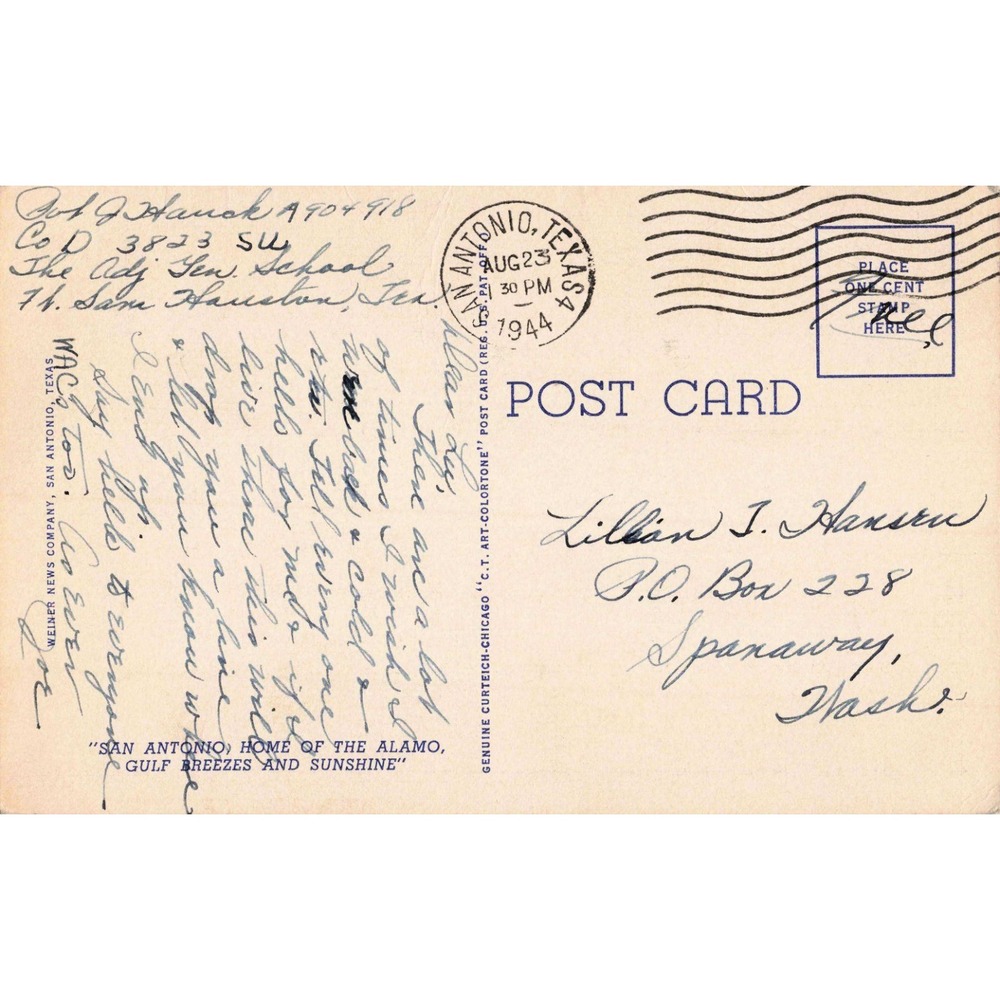 J Hauck A904918
Co D 3823 SU
The Adj Gen. School
Ft. Sam Houston, Tex.
Dear
There are a lot
of times I wish I
were back &
rts. Tell every one
hello for me &
live thru this will
drop you a line
& let you know where
I End up
Say hello to everyone
WAC too. As Ever
SAN ANTONIO, TEXAS 4
AUG 23
1 30 PM
1944
PLACE
ONE CENT
STAMP
HERE
Free
POST CARD
Lillian I. Hansen
P.O. Box 228
Spanaway,
Wash.
GENUINE CURTEICH-CHICAGO "C.T. ART-COLORTONE" POST CARD (REG. U.S. PAT. OFF.)
WEINER NEWS COMPANY, SAN ANTONIO, TEXAS
"SAN ANTONIO, HOME OF THE ALAMO,
GULF BREEZES AND SUNSHINE"